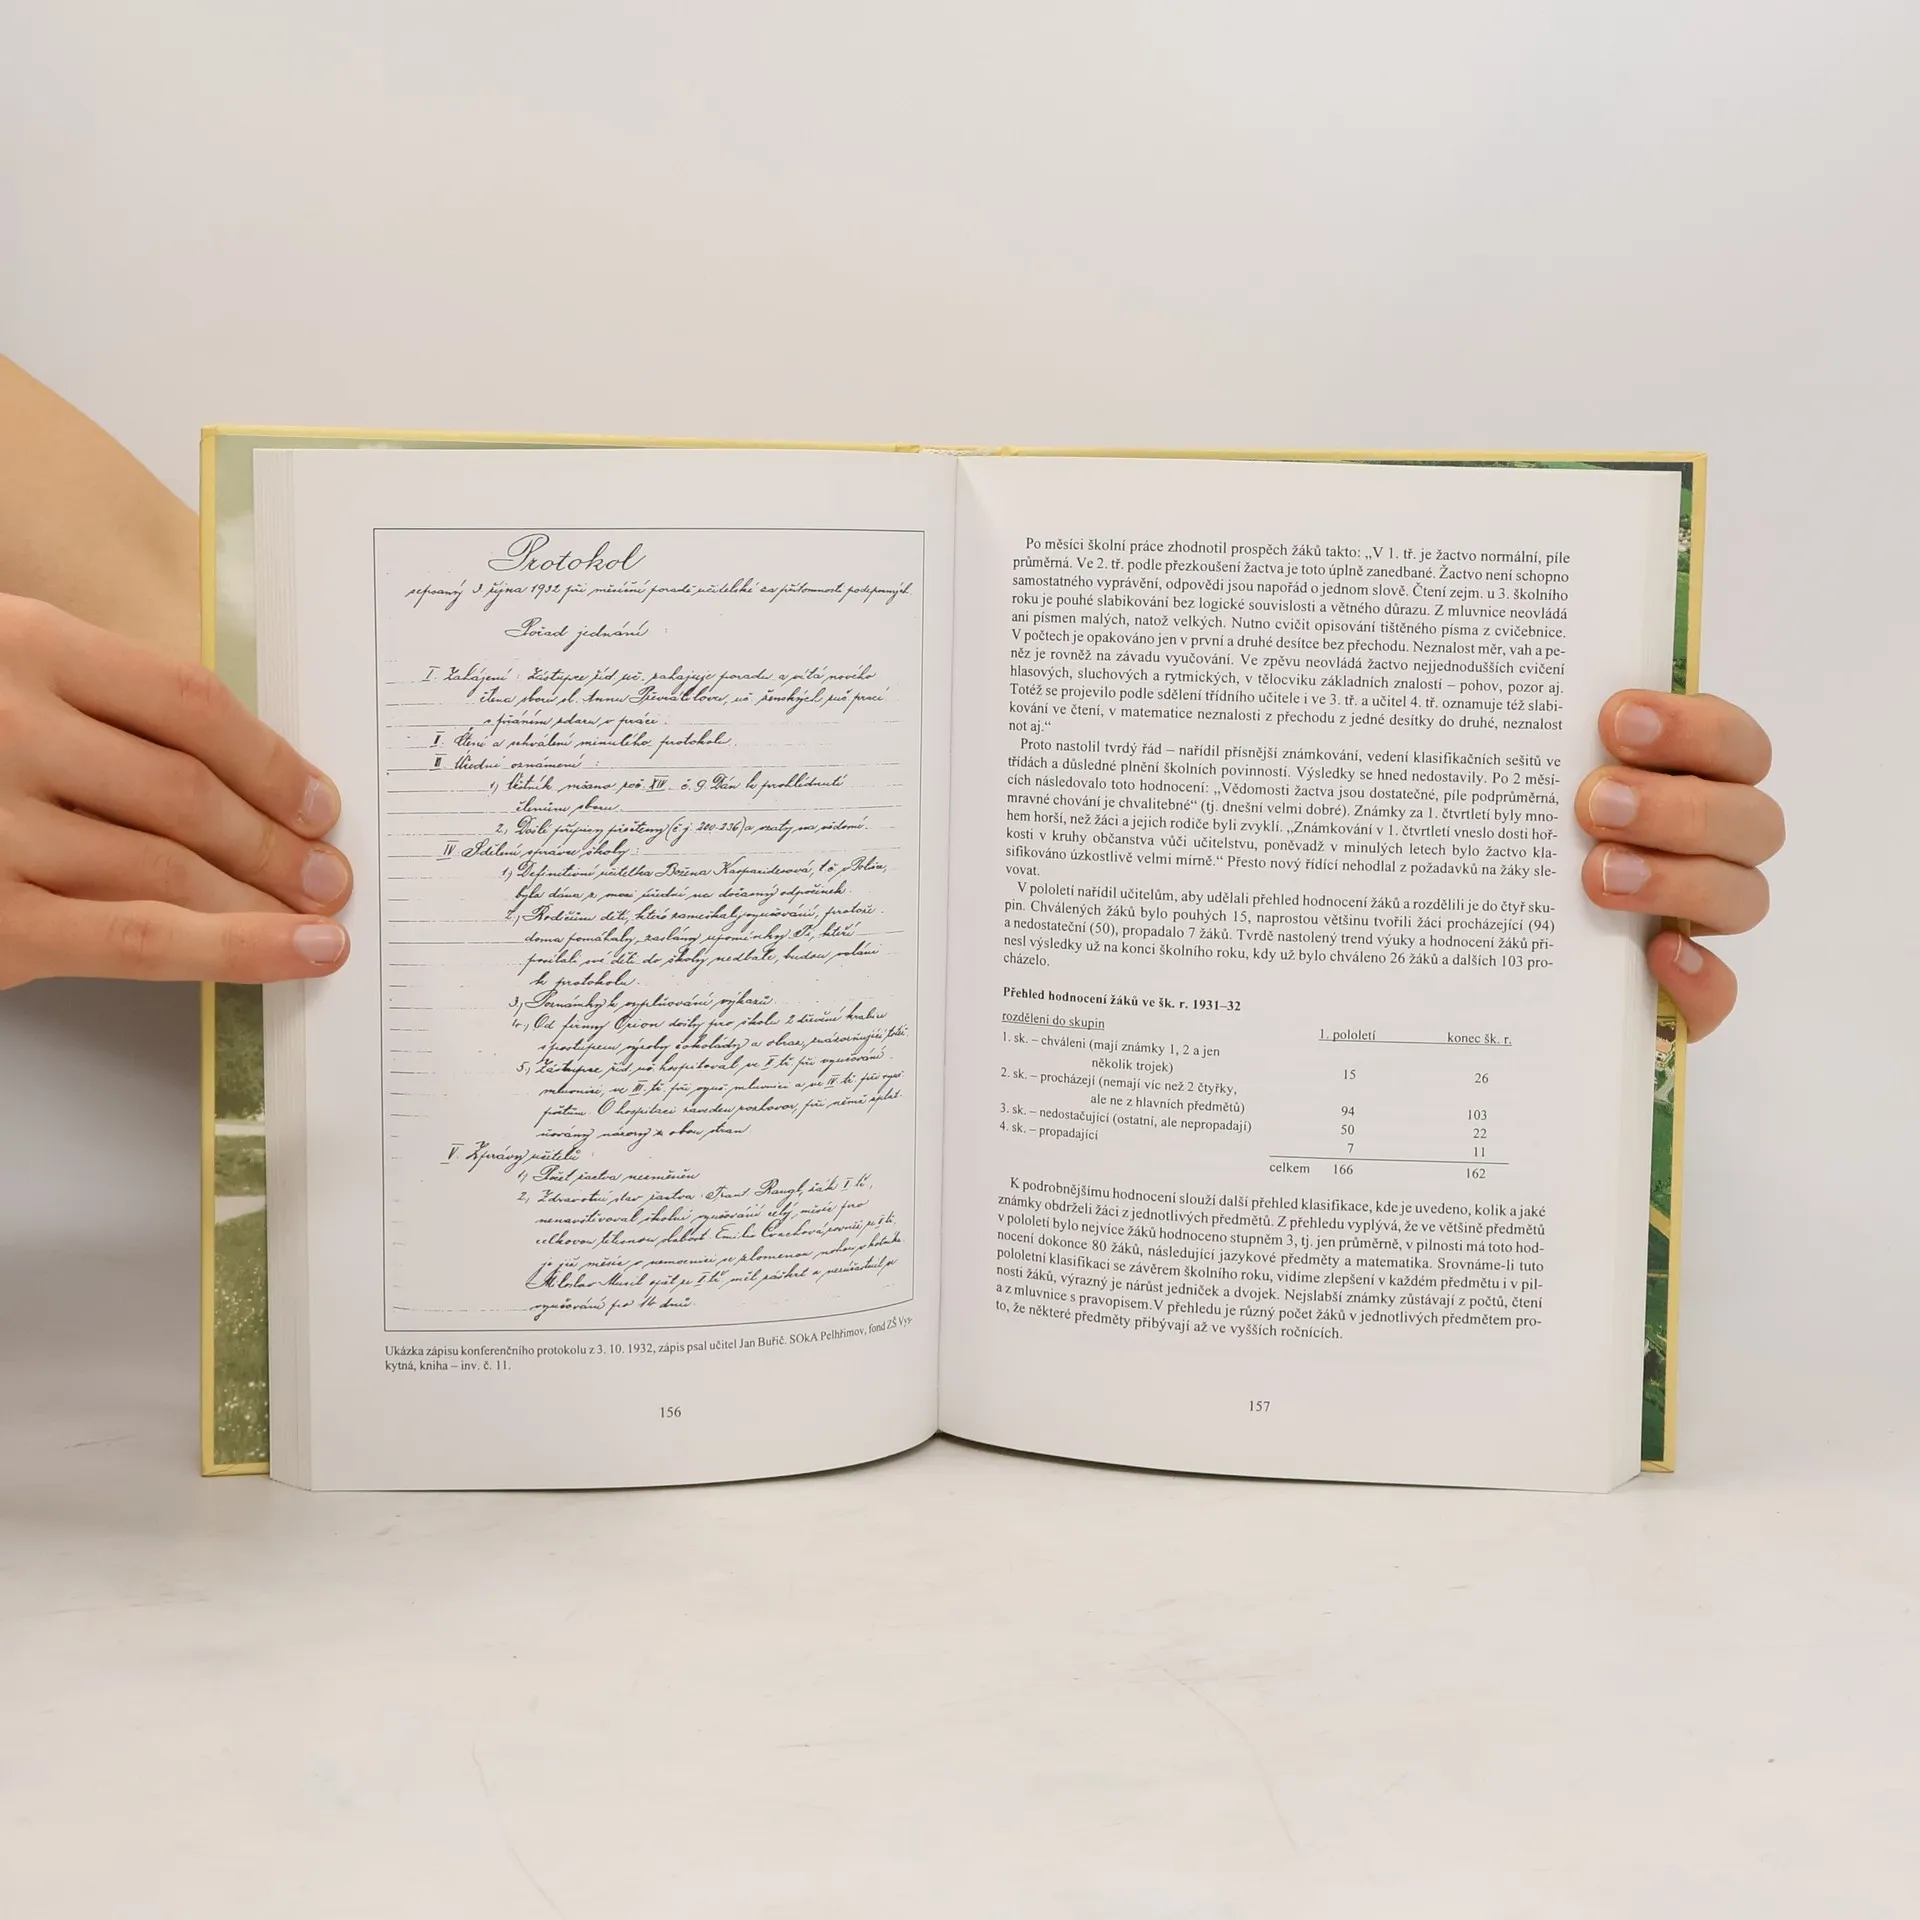 Protokol
sepsaný 3. října 1932 při měsíční poradě učitelské za přítomnosti podepsaných.
Pořad jednání :
I. Zahájení : Zástupce říd. uč. zahajuje poradu a vítá nového
člena sboru sl. Annu uč. ženských ruč. prací
s přáním zdaru v práci.
II. Čtení a schválení minulého protokolu.
III. Úřední oznámení :
1) Věstník roč. XIV. č. 9. Dán k prohlédnutí
členům sboru.
2.) Došlé přípisy přečteny (č. j. 200-236) a vzaty na vědomí.
IV. Sdělení správce školy :
1) Definitivní učitelka Božena
byla dána z moci úřední na dočasný odpočinek.
2.) Rodičům dětí, které zameškaly vyučování, protože
doma pomáhaly, zaslány upomínky. Ti, kteří
posílali své děti do školy nedbale, budou voláni
k protokolu.
3) Poznámky k vyplňování výkazů.
4.) Od firmy Orion došly pro školu 2 dřevěné krabice
s postupem výroby čokolády a obraz, znázorňující
5.) Zástupce říd. uč. hospitoval ve II. tř. při vyučování
mluvnici, ve III. tř. při vyuč. mluvnici a ve IV. tř. při vyuč.
počtům. O hospitaci zaveden rozhovor, při němž
názory z obou stran.
V. Zprávy učitelů
1) Počet žactva nezměněn
2.) Zdravotní stav žactva : Frant. žák I. tř.,
nenavštěvoval školní vyučování celý měsíc pro
celkovou tělesnou slabost. Emilie rovněž z I. tř.
je již měsíc v nemocnici se zlomenou nohou v kotníku.
Miloslav Musil opět ze I. tř. měl a nezúčastnil se
vyučování po 14 dnů.
Ukázka zápisu konferenčního protokolu z 3. 10. 1932, zápis psal učitel Jan Buřič. SOkA Pelhřimov, fond ZŠ Vys-
kytná, kniha – inv. č. 11.
156
Po měsíci školní práce zhodnotil prospěch žáků takto: „V 1. tř. je žactvo normální, píle
průměrná. Ve 2. tř. podle přezkoušení žactva je toto úplně zanedbané. Žactvo není schopno
samostatného vyprávění, odpovědi jsou napořád o jednom slově. Čtení zejm. u 3. školního
roku je pouhé slabikování bez logické souvislosti a větného důrazu. Z mluvnice neovládá
ani písmen malých, natož velkých. Nutno cvičit opisování tištěného písma z cvičebnice.
V počtech je opakováno jen v první a druhé desítce bez přechodu. Neznalost měr, vah a pe-
něz je rovněž na závadu vyučování. Ve zpěvu neovládá žactvo nejjednodušších cvičení
hlasových, sluchových a rytmických, v tělocviku základních znalostí – pohov, pozor aj.
Totéž se projevilo podle sdělení třídního učitele i ve 3. tř. a učitel 4. tř. oznamuje též slabi-
kování ve čtení, v matematice neznalosti z přechodu z jedné desítky do druhé, neznalost
not aj.“
Proto nastolil tvrdý řád – nařídil přísnější známkování, vedení klasifikačních sešitů ve
třídách a důsledné plnění školních povinností. Výsledky se hned nedostavily. Po 2 měsí-
cích následovalo toto hodnocení: „Vědomosti žactva jsou dostatečné, píle podprůměrná,
mravné chování je chvalitebné“ (tj. dnešní velmi dobré). Známky za 1. čtvrtletí byly mno-
hem horší, než žáci a jejich rodiče byli zvyklí. „Známkování v 1. čtvrtletí vneslo dosti hoř-
kosti v kruhy občanstva vůči učitelstvu, poněvadž v minulých letech bylo žactvo kla-
sifikováno úzkostlivě velmi mírně.“ Přesto nový řídící nehodlal z požadavků na žáky sle-
vovat.
V pololetí nařídil učitelům, aby udělali přehled hodnocení žáků a rozdělili je do čtyř sku-
pin. Chválených žáků bylo pouhých 15, naprostou většinu tvořili žáci procházející (94)
a nedostateční (50), propadalo 7 žáků. Tvrdě nastolený trend výuky a hodnocení žáků při-
nesl výsledky už na konci školního roku, kdy už bylo chváleno 26 žáků a dalších 103 pro-
cházelo.
Přehled hodnocení žáků ve šk. r. 1931–32
rozdělení do skupin 1. pololetí konec šk. r.
1. sk. – chválení (mají známky 1, 2 a jen
několik trojek) 15 26
2. sk. – procházejí (nemají víc než 2 čtyřky,
ale ne z hlavních předmětů) 94 103
3. sk. – nedostačující (ostatní, ale nepropadají) 50 22
4. sk. – propadající 7 11
celkem 166 162
K podrobnějšímu hodnocení slouží další přehled klasifikace, kde je uvedeno, kolik a jaké
známky obdrželi žáci z jednotlivých předmětů. Z přehledu vyplývá, že ve většině předmětů
v pololetí bylo nejvíce žáků hodnoceno stupněm 3, tj. jen průměrně, v pilnosti má toto hod-
nocení dokonce 80 žáků, následující jazykové předměty a matematika. Srovnáme-li tuto
pololetní klasifikaci se závěrem školního roku, vidíme zlepšení v každém předmětu i v pil-
nosti žáků, výrazný je nárůst jedniček a dvojek. Nejslabší známky zůstávají z počtů, čtení
a z mluvnice s pravopisem. V přehledu je různý počet žáků v jednotlivých předmětem pro-
to, že některé předměty přibývají až ve vyšších ročnících.
157